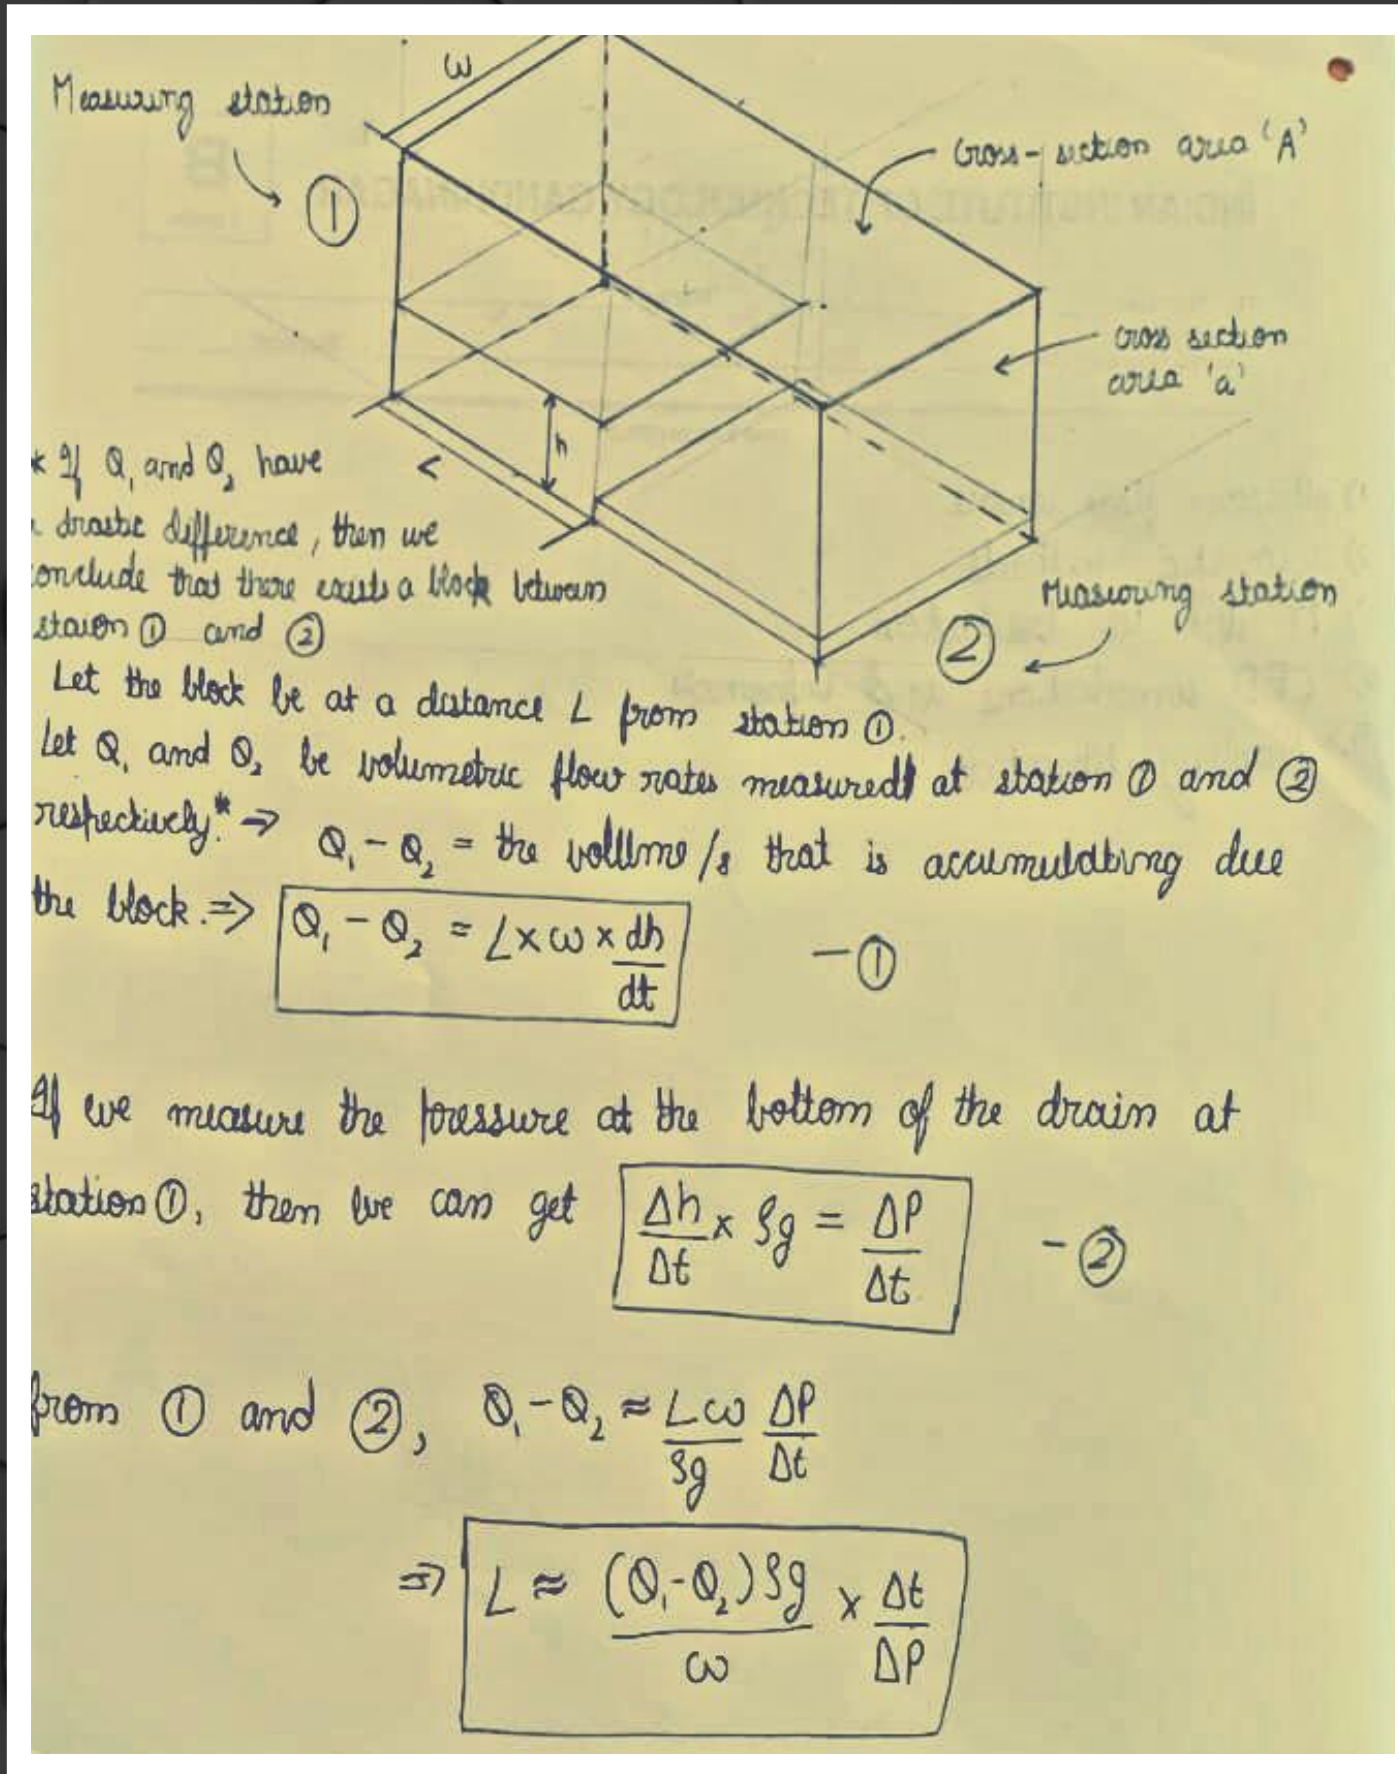 ω
Measuring station
①
cross-section area 'A'
cross section
area 'a'
h
* If Q₁ and Q₂ have
drastic difference, then we
conclude that there exists a block between
staion ① and ②
Measuring station
②
Let the block be at a distance L from station ①.
Let Q₁ and Q₂ be volumetric flow rates measured at station ① and ②
respectively.* ⇒ Q₁ - Q₂ = the vollume/s that is accumulating due
the block. ⇒ Q₁ - Q₂ = L × ω × dh/dt - ①
If we measure the pressure at the bottom of the drain at
station ①, then we can get Δh/Δt × ρg = ΔP/Δt - ②
from ① and ②, Q₁ - Q₂ ≈ Lω/ρg ΔP/Δt
⇒ L ≈ (Q₁-Q₂)ρg/ω × Δt/ΔP